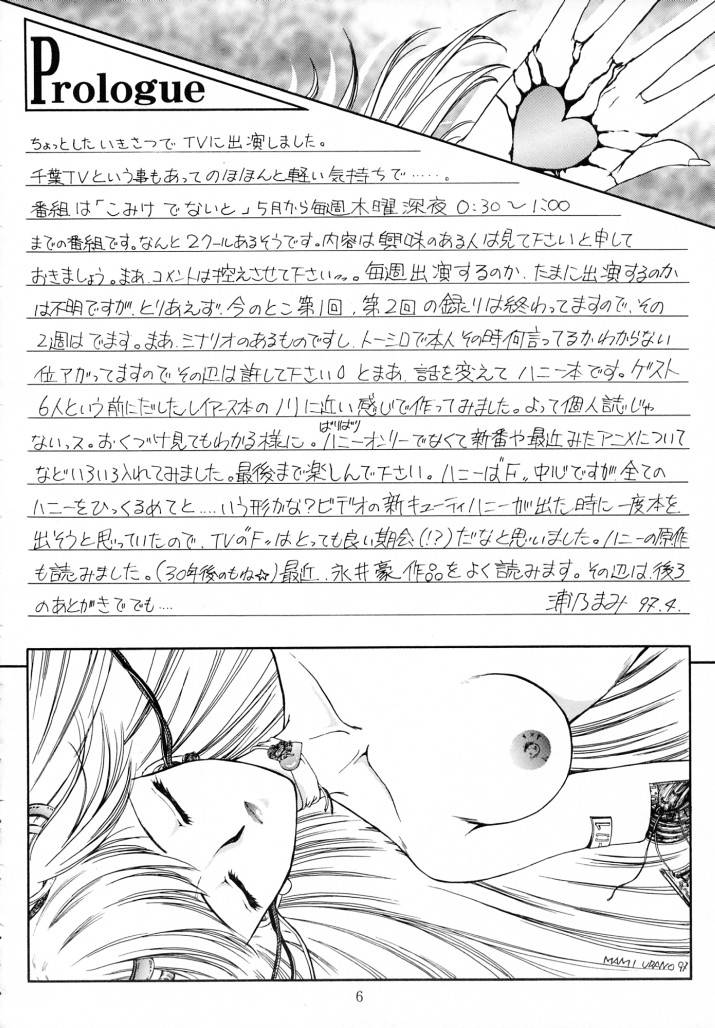 Prologue
ちょっとした いきさつで TVに出演しました。
千葉TVという事もあってのほほんと軽い気持ちで‥‥‥。
番組は「こみけ でないと」5月から毎週木曜深夜 0:30〜1:00
までの番組です。なんと2クールあるそうです。内容は興味のある人は見て下さいと申して
おきましょう。まあ、コメントは控えさせて下さい。毎週出演するのか、たまに出演するのか
は不明ですが、とりあえず、今のとこ第1回、第2回の録りは終わってますので、その
2週はでます。まあ、ミナリオのあるものですし、トーシロで本人その時何言ってるかわからない
位アガってますのでその辺は許して下さい。とまあ、話を変えてハニー本です。ゲスト
6人という前にだしたレイアース本のノリに近い感じで作ってみました。よって個人誌じゃ
ないっス。おくづけ見てもわかる様に。ばりばりハニーオンリーでなくて新番や最近みたアニメについて
などいろいろ入れてみました。最後まで楽しんで下さい。ハニーは〝F〟中心ですが全ての
ハニーをひっくるめてと‥‥いう形かな?ビデオの新キューティハニーが出た時に一度本を
出そうと思っていたので、TVの〝F〟はとっても良い期会(!?)だなと思いました。ハニーの原作
も読みました。(30年後のもね☆)最近、永井豪作品をよく読みます。その辺は、後ろ
のあとがきででも‥‥ 浦乃まみ 97.4.
MAMI URANO 97
6